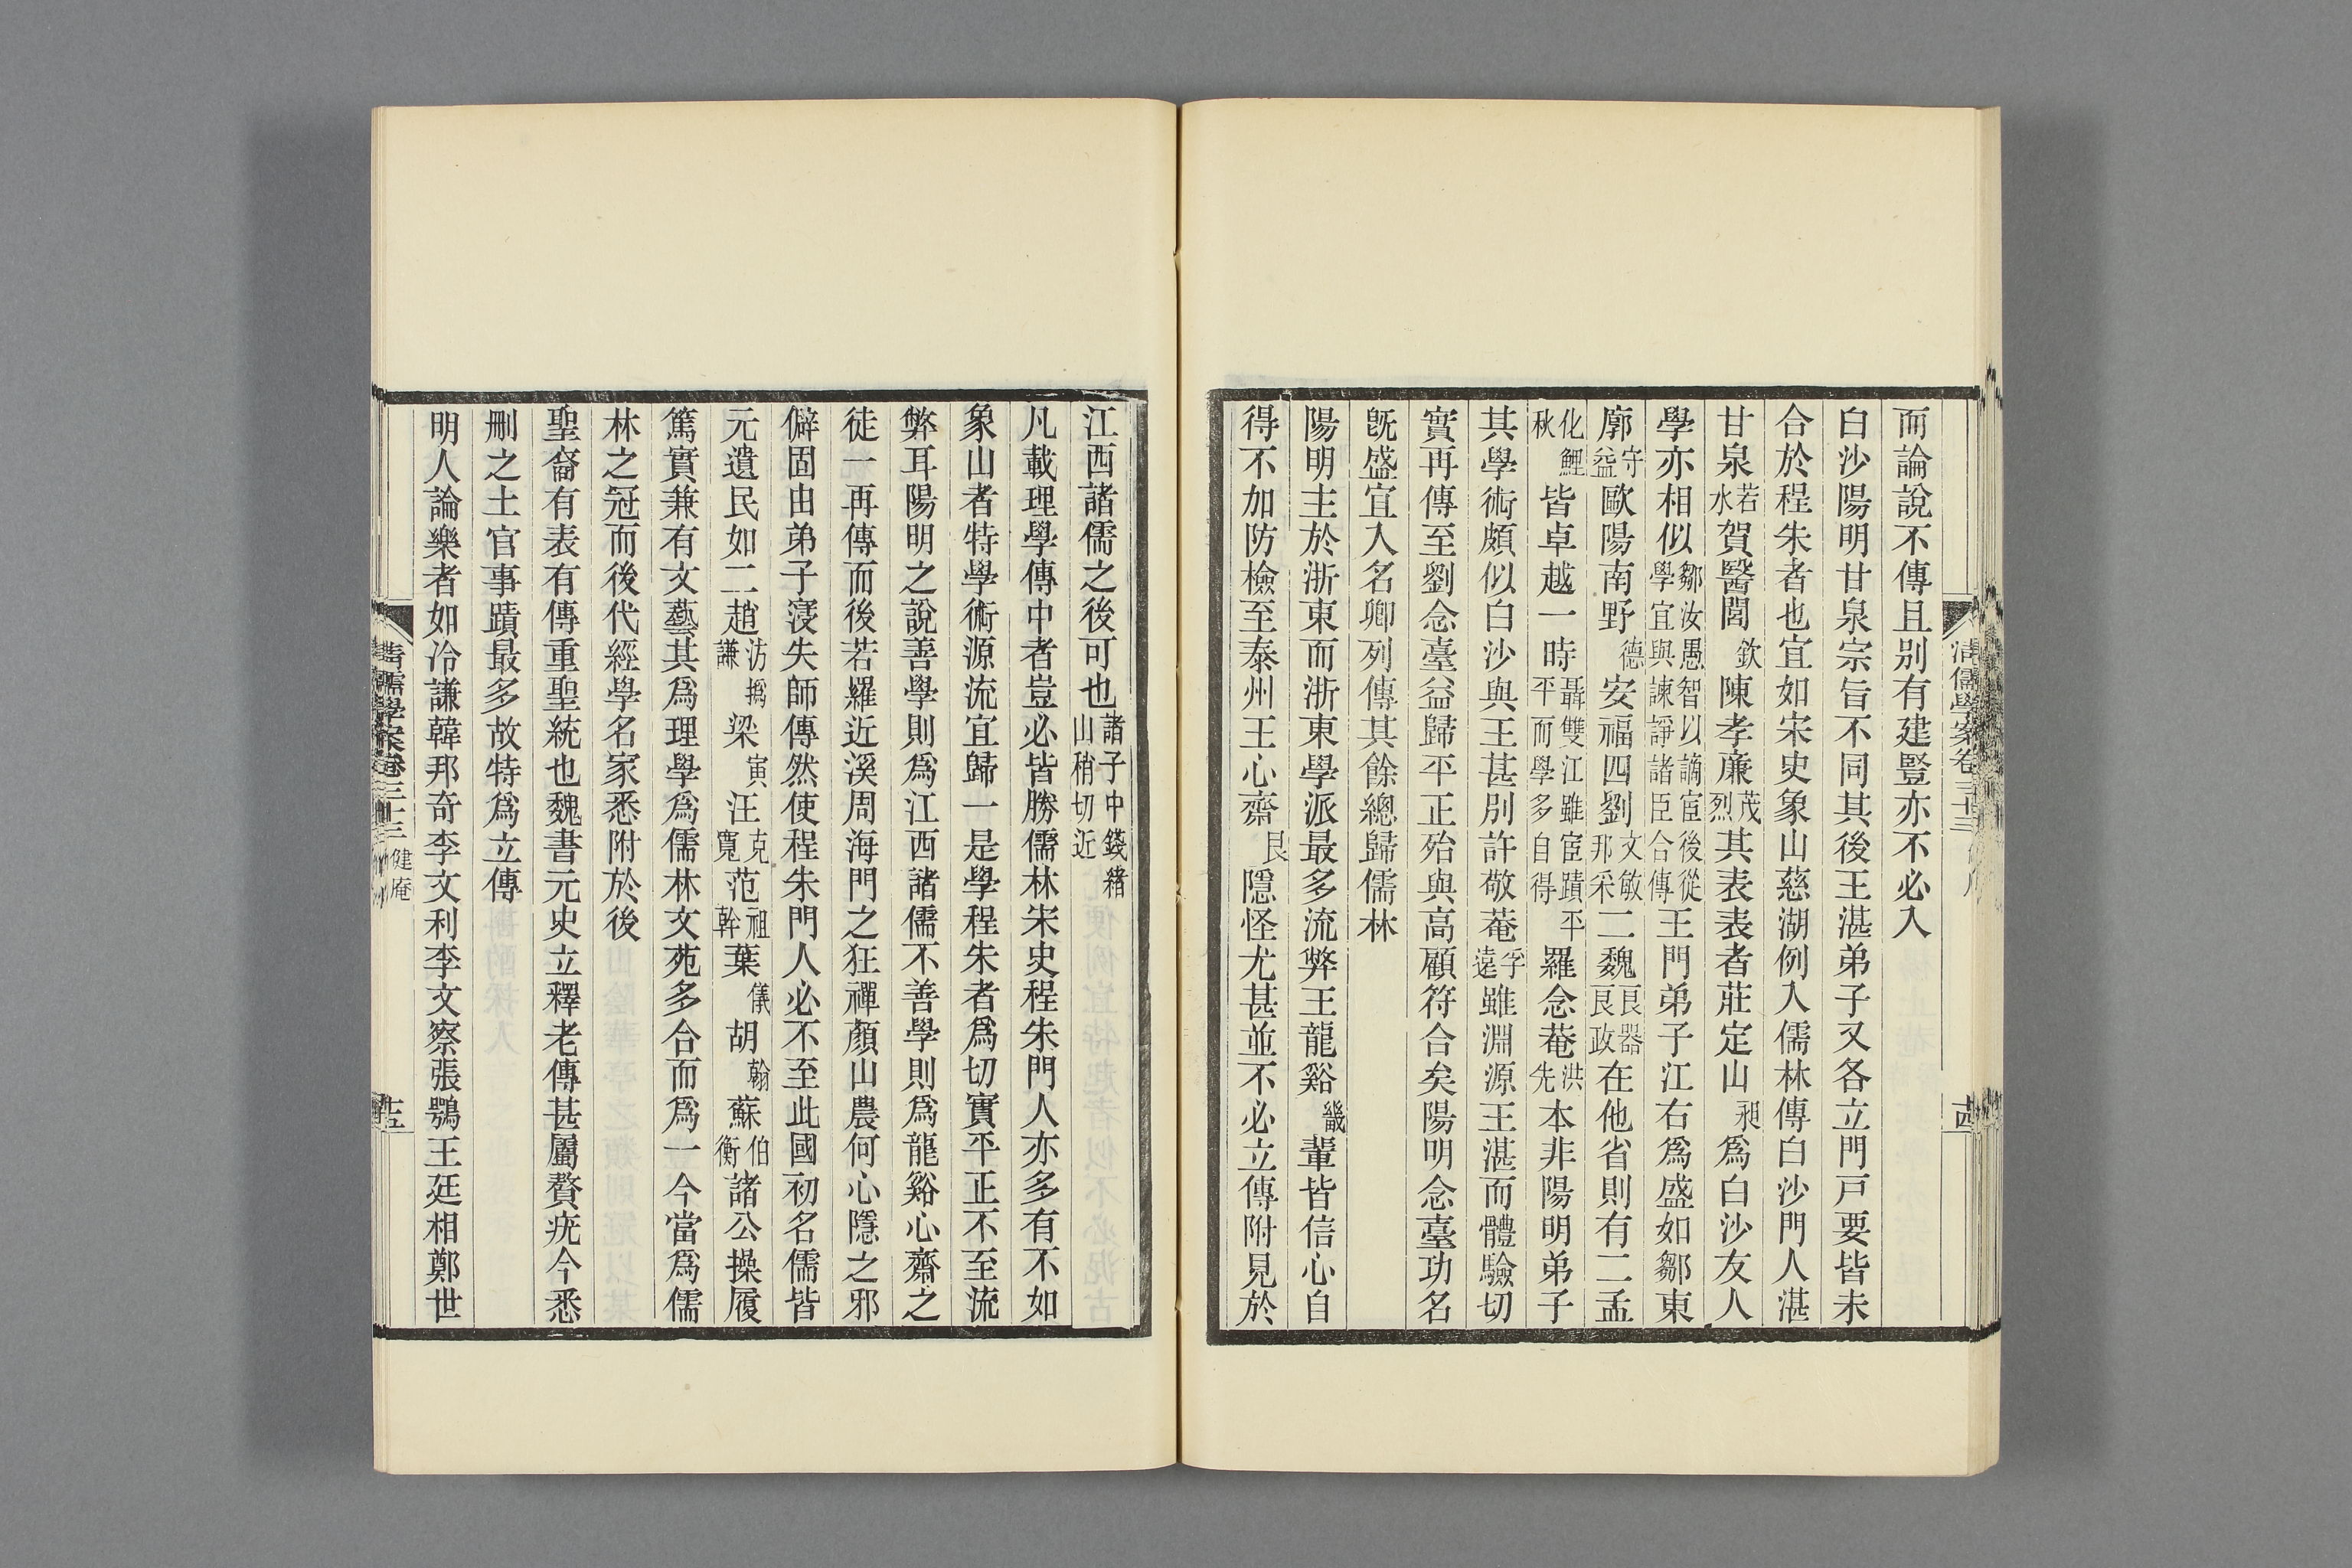 清儒學案卷三十三
十四
而論說不傳且別有建豎亦不必入
白沙陽明甘泉宗旨不同其後王湛弟子又各立門戸要皆未
合於程朱者也宜如宋史象山慈湖例入儒林傳白沙門人湛
甘泉若水賀醫閭欽陳孝廉茂烈其表表者莊定山昶爲白沙友人
學亦相似鄒汝愚智以謫宦後從學宜與諫諍諸臣合傳王門弟子江右爲盛如鄒東
廓守益歐陽南野德安福四劉文敏邦采二魏良器良政在他省則有二孟
化鯉秋皆卓越一時聶雙江雖宦蹟平平而學多自得羅念菴洪先本非陽明弟子
其學術頗似白沙與王甚別許敬菴孚遠雖淵源王湛而體驗切
實再傳至劉念臺益歸平正殆與高顧符合矣陽明念臺功名
旣盛宜入名卿列傳其餘總歸儒林
陽明主於浙東而浙東學派最多流弊王龍谿畿輩皆信心自
得不加防檢至泰州王心齋艮隱怪尤甚並不必立傳附見於
江西諸儒之後可也諸子中錢緒山稍切近
凡載理學傳中者豈必皆勝儒林宋史程朱門人亦多有不如
象山者特學術源流宜歸一是學程朱者爲切實平正不至流
弊耳陽明之說善學則爲江西諸儒不善學則爲龍谿心齋之
徒一再傳而後若羅近溪周海門之狂禪顏山農何心隱之邪
僻固由弟子寖失師傳然使程朱門人必不至此國初名儒皆
元遺民如二趙汸撝謙梁寅汪克寬范祖幹葉儀胡翰蘇伯衡諸公操履
篤實兼有文藝其爲理學爲儒林文苑多合而爲一今當爲儒
林之冠而後代經學名家悉附於後
聖裔有表有傳重聖統也魏書元史立釋老傳甚屬贅疣今悉
刪之土官事蹟最多故特爲立傳
明人論樂者如冷謙韓邦奇李文利李文察張鶚王廷相鄭世
清儒學案卷三十三 健庵
十五